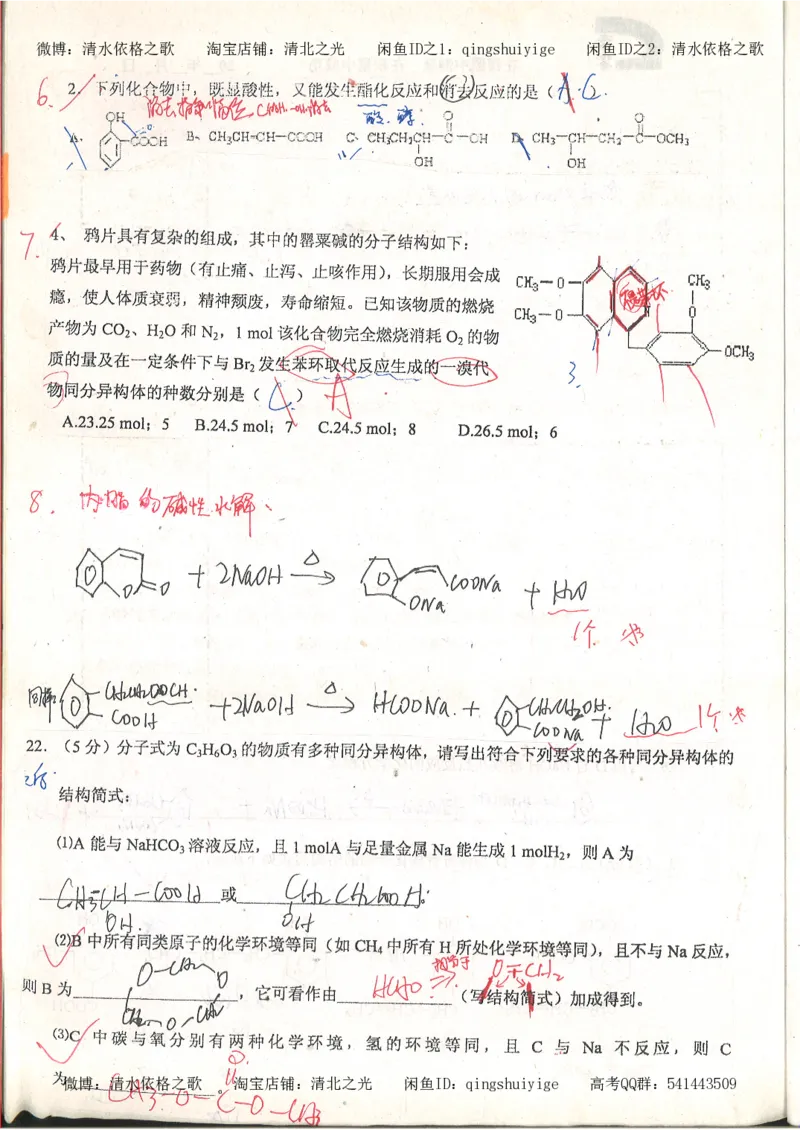 微博：清水依格之歌 淘宝店铺：清北之光 闲鱼ID之1：qingshuiyige 闲鱼ID之2：清水依格之歌
6. 2、下列化合物中，既显酸性，又能发生酯化反应和消去反应的是（ C
酸 醇
A. OH COOH B、CH3CH=CH—COOH C、CH3CH2CH—C—OH O OH D、CH3—CH—CH2—C—OCH3 O OH
7. 4、 鸦片具有复杂的组成，其中的罂粟碱的分子结构如下：
鸦片最早用于药物（有止痛、止泻、止咳作用），长期服用会成
瘾，使人体质衰弱，精神颓废，寿命缩短。已知该物质的燃烧
产物为 CO2、H2O 和 N2，1 mol 该化合物完全燃烧消耗 O2 的物
质的量及在一定条件下与 Br2 发生苯环取代反应生成的一溴代
物同分异构体的种数分别是（ C ） A
CH3—O CH3—O N CH3 O OCH3
3.
A.23.25 mol；5 B.24.5 mol；7 C.24.5 mol；8 D.26.5 mol；6
8. 内酯的碱性水解、
O O + 2NaOH △ → COONa ONa + H2O
1个
同样 COOH +2NaOH △ → HCOONa + CH2CH2OH COONa + H2O 1个
22.（5 分）分子式为 C3H6O3 的物质有多种同分异构体，请写出符合下列要求的各种同分异构体的
结构简式：
⑴A 能与 NaHCO3 溶液反应，且 1 molA 与足量金属 Na 能生成 1 molH2，则 A 为
CH3CH—COOH 或 CH2CH2COOH
OH OH
⑵B 中所有同类原子的化学环境等同（如 CH4 中所有 H 所处化学环境等同），且不与 Na 反应，
O—CH2 O CH2—O—CH2
则 B 为 ，它可看作由 HCHO （写结构简式）加成得到。
相当于 O=CH2
⑶C 中碳与氧分别有两种化学环境，氢的环境等同，且 C 与 Na 不反应，则 C
为 CH3—O—C—O—CH3 O 。
微博：清水依格之歌 淘宝店铺：清北之光 闲鱼ID：qingshuiyige 高考QQ群：541443509